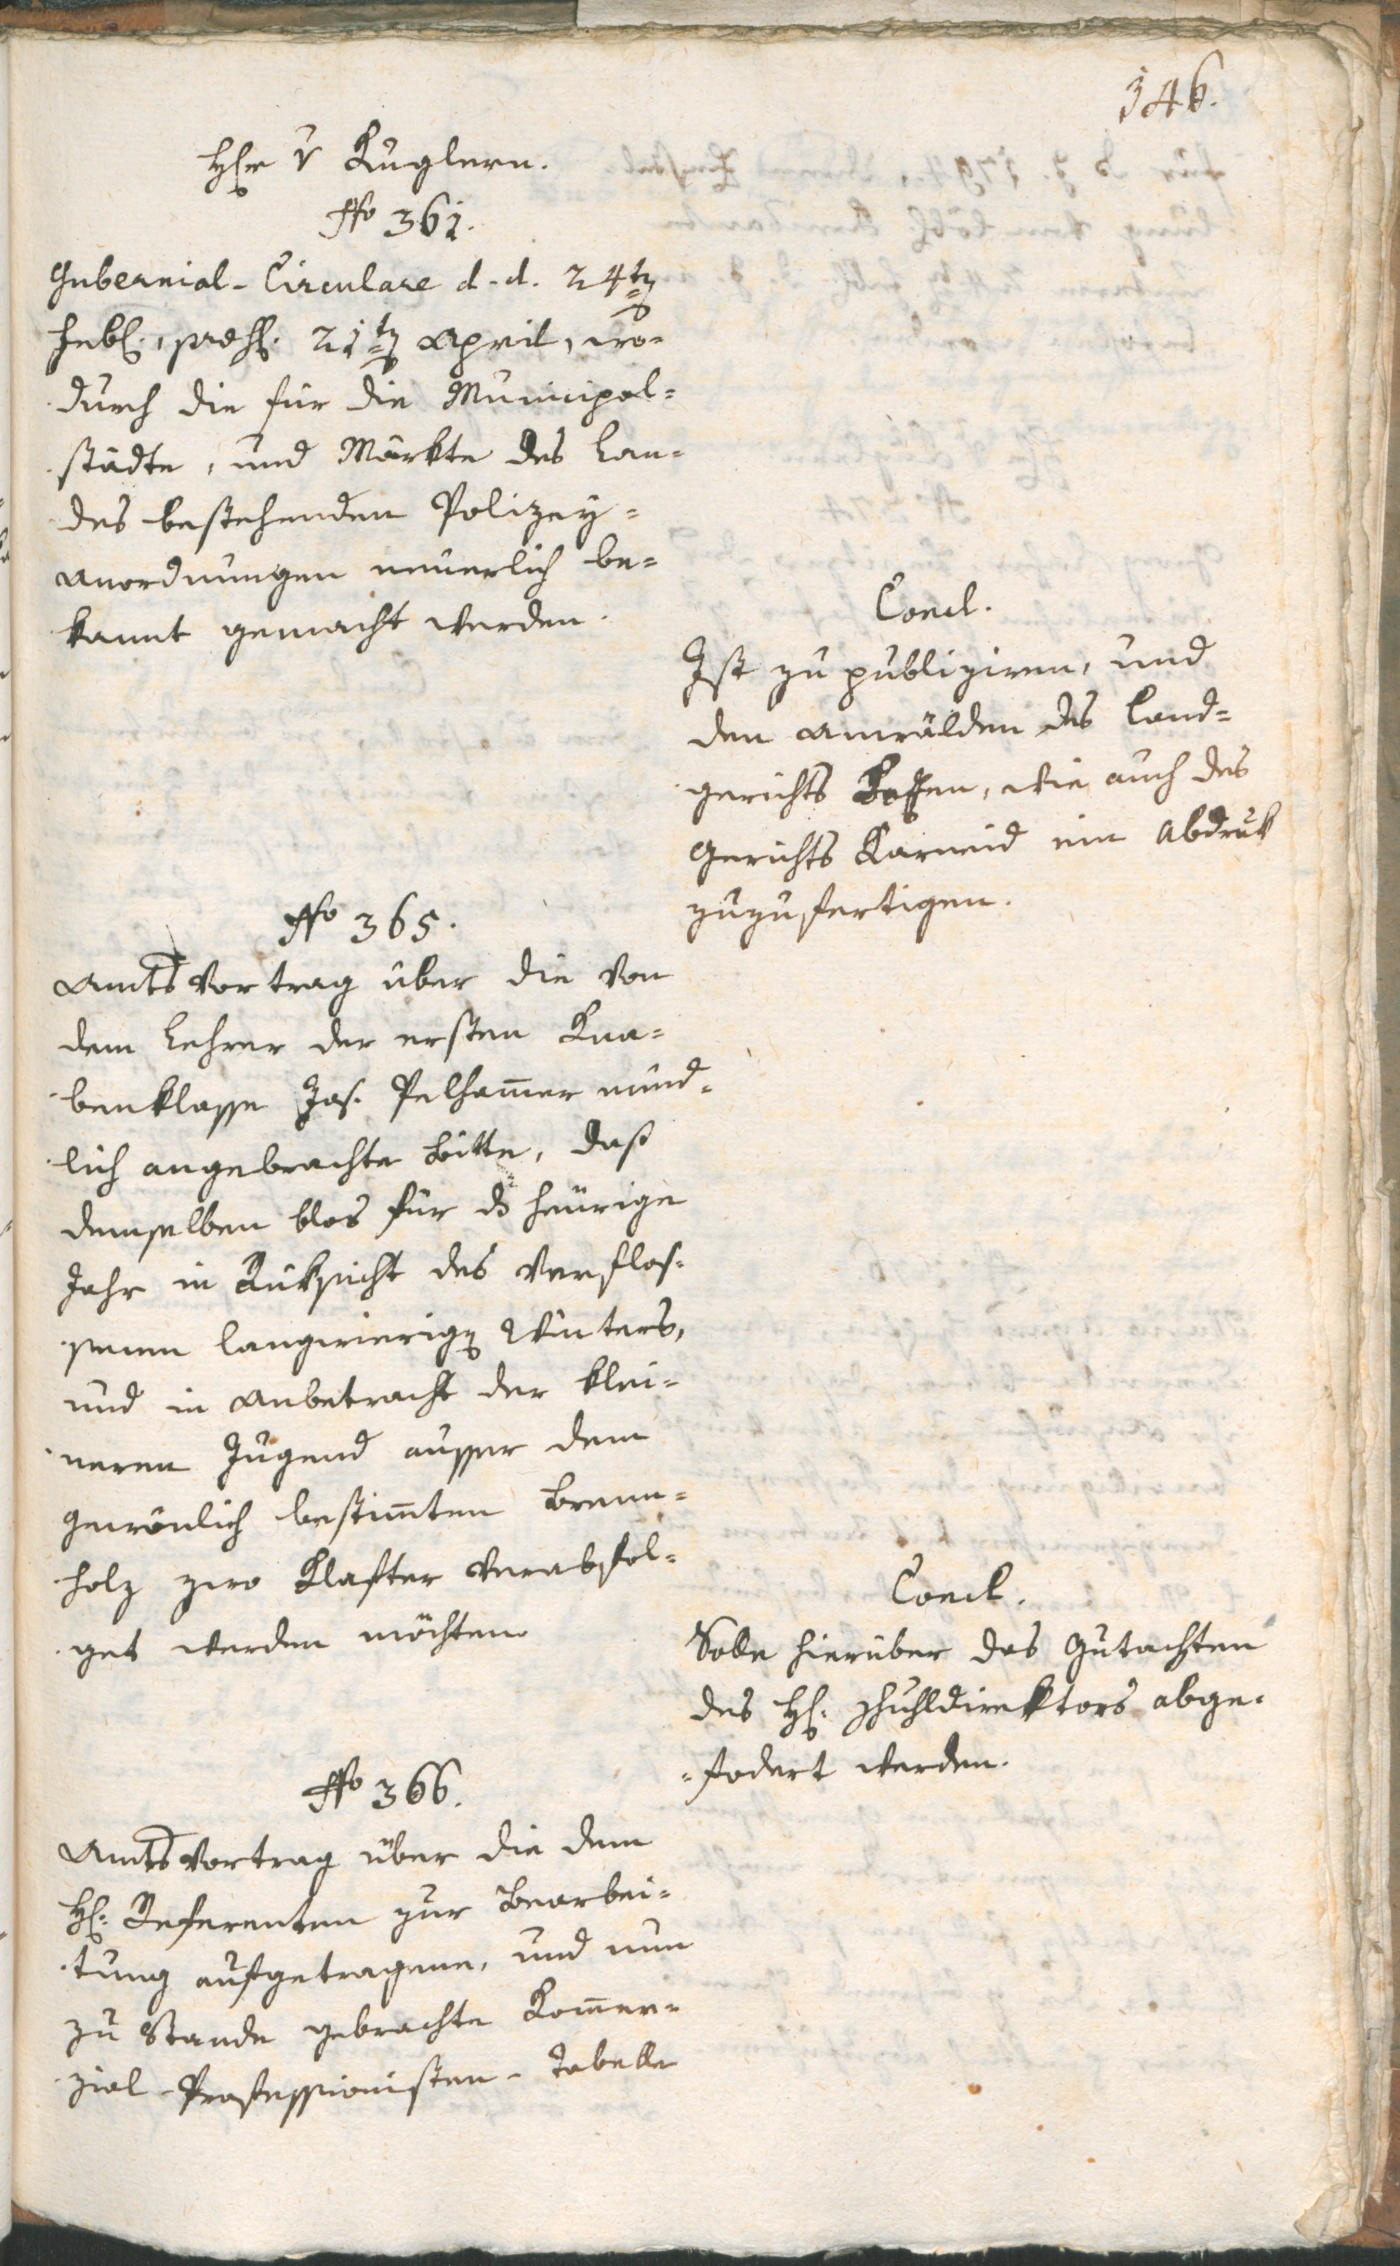 346.
Hr v Kuglern.
No 361.
Gubernial-Circulare d. d. 24ten
Febr., praes. 21ten April, wo-
durch die für die Municipal-
städte, und Märkte des Lan-
des bestehenden Polizey-
Anordnungen neuerlich be-
kannt gemacht werden.
Concl.
Ist zu publiziren, und
den Anwälden des Land-
gerichts Botzen, wie auch des
Gerichts Karneid ein Abdruk
zuzufertigen.
No 365.
Amts Vortrag über die von
dem Lehrer der ersten Kna-
benklasse Jos. Pelhamer münd-
lich angebrachte Bitte, daß
demselben blos für das heurige
Jahr in Rüksicht des verflos-
senen langwierigen Winters,
und in Anbetracht der klei-
neren Jugend ausser dem
gewönlich bestimten Brenn-
holz zwo Klafter verabfol-
get werden möchten
Concl.
Solle hierüber das Gutachten
des H. Schuhldirektors abge-
fodert werden.
No 366.
Amts Vortrag über die dem
H. Referenten zur Bearbei-
tung aufgetragene, und nun
zu Stande gebrachte Komer-
zial-Professionisten-Tabelle